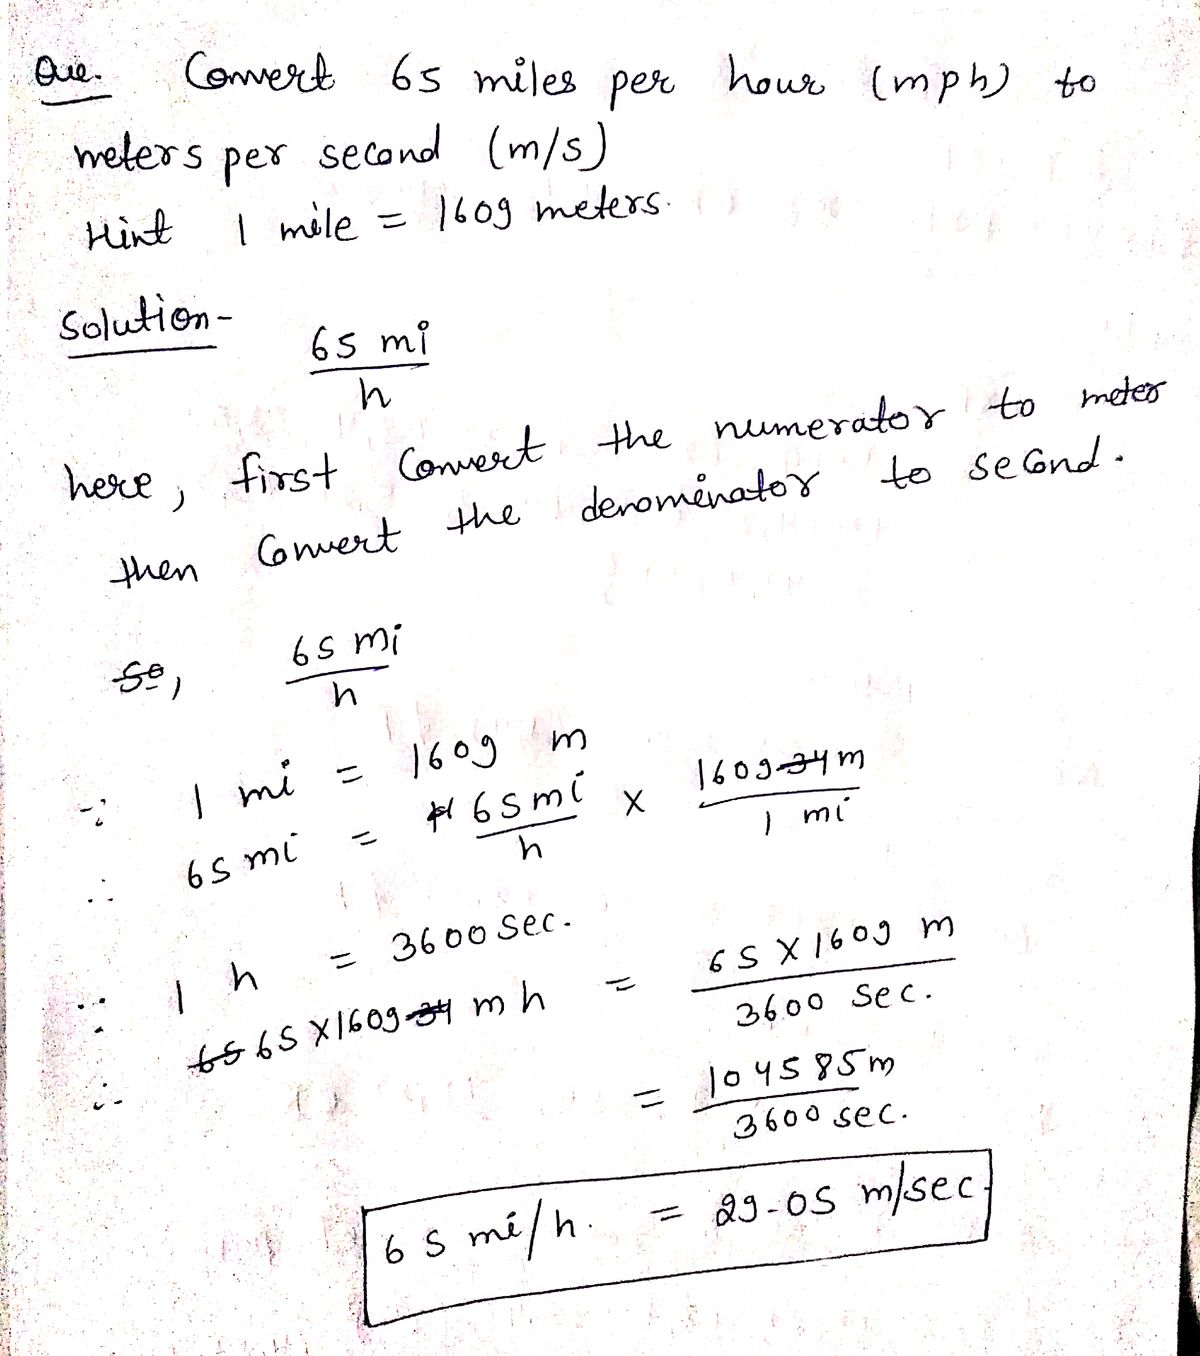 Que. Convert 65 miles per hour (mph) to
meters per second (m/s)
Hint 1 mile = 1609 meters.
Solution-
65 mi
h
here, first convert the numerator to meter
then convert the denominator to second.
So,
65 mi
h
∵ 1 mi = 1609 m
∴ 65 mi = 65 mi/h × 1609.34 m/1 mi
∵ 1 h = 3600 sec.
∴ 65 65 X 1609.34 m h = 65 X 1609 m/3600 sec.
= 104585 m/3600 sec.
65 mi/h. = 29.05 m/sec.